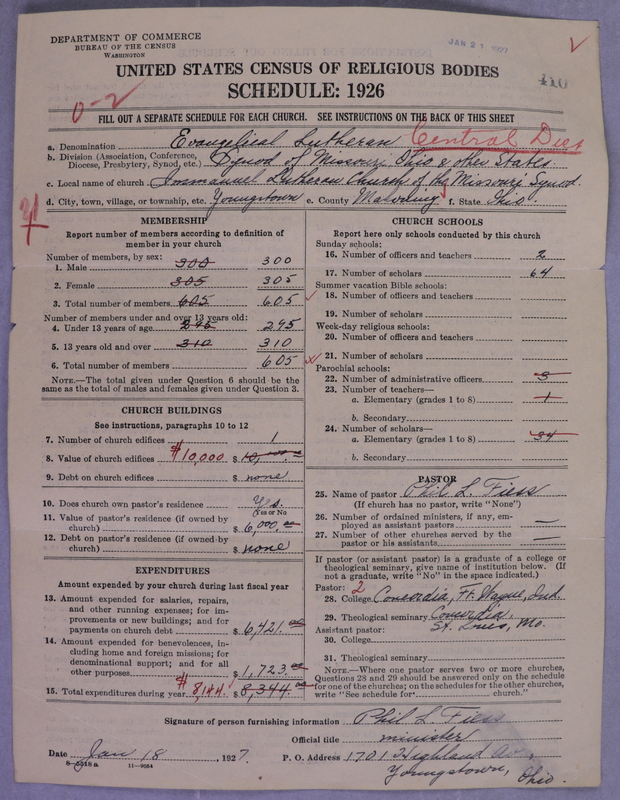 DEPARTMENT OF COMMERCE
BUREAU OF THE CENSUS
WASHINGTON
JAN 21 1927
410
UNITED STATES CENSUS OF RELIGIOUS BODIES
SCHEDULE: 1926
0-2
FILL OUT A SEPARATE SCHEDULE FOR EACH CHURCH. SEE INSTRUCTIONS ON THE BACK OF THIS SHEET
a. Denomination Evangelical Lutheran Central Dist
b. Division (Association, Conference, Diocese, Presbytery, Synod, etc.) Synod of Missouri, Ohio & other States
c. Local name of church Immanuel Lutheran Church of the Missouri Synod.
d. City, town, village, or township, etc. Youngstown e. County Mahoning f. State Ohio.
MEMBERSHIP
Report number of members according to definition of
member in your church
Number of members, by sex:
1. Male 300 300
2. Female 305 305
3. Total number of members 605 605
Number of members under and over 13 years old:
4. Under 13 years of age 295 295
5. 13 years old and over 310 310
6. Total number of members 605
NOTE.—The total given under Question 6 should be the
same as the total of males and females given under Question 3.
CHURCH BUILDINGS
See instructions, paragraphs 10 to 12
7. Number of church edifices 1
8. Value of church edifices $10,000. $ 10,000.00
9. Debt on church edifices $ none
10. Does church own pastor's residence Yes.
(Yes or No)
11. Value of pastor's residence (if owned by
church) $ 6,000.00
12. Debt on pastor's residence (if owned by
church) $ none
EXPENDITURES
Amount expended by your church during last fiscal year
13. Amount expended for salaries, repairs,
and other running expenses; for im-
provements or new buildings; and for
payments on church debt $ 6,421.00
14. Amount expended for benevolences, in-
cluding home and foreign missions; for
denominational support; and for all
other purposes $ 1,723.00
15. Total expenditures during year $8,144. $ 8,344.00
CHURCH SCHOOLS
Report here only schools conducted by this church
Sunday schools:
16. Number of officers and teachers 2
17. Number of scholars 64
Summer vacation Bible schools:
18. Number of officers and teachers
19. Number of scholars
Week-day religious schools:
20. Number of officers and teachers
21. Number of scholars
Parochial schools:
22. Number of administrative officers 3
23. Number of teachers—
a. Elementary (grades 1 to 8) 1
b. Secondary
24. Number of scholars—
a. Elementary (grades 1 to 8) 34
b. Secondary
PASTOR
25. Name of pastor Phil L. Fiess
(If church has no pastor, write "None")
26. Number of ordained ministers, if any, em-
ployed as assistant pastors —
27. Number of other churches served by the
pastor or his assistants —
If pastor (or assistant pastor) is a graduate of a college or
theological seminary, give name of institution below. (If
not a graduate, write "No" in the space indicated.)
Pastor: 2
28. College Concordia, Ft. Wayne, Ind.
29. Theological seminary Concordia,
Assistant pastor: St. Louis, Mo.
30. College
31. Theological seminary
NOTE.—Where one pastor serves two or more churches,
Questions 28 and 29 should be answered only on the schedule
for one of the churches; on the schedules for the other churches,
write "See schedule for church."
Signature of person furnishing information Phil L. Fiess
Official title minister
Date Jan 18, 1927. P. O. Address 1701 Highland Av.,
Youngstown, Ohio.
11—9084